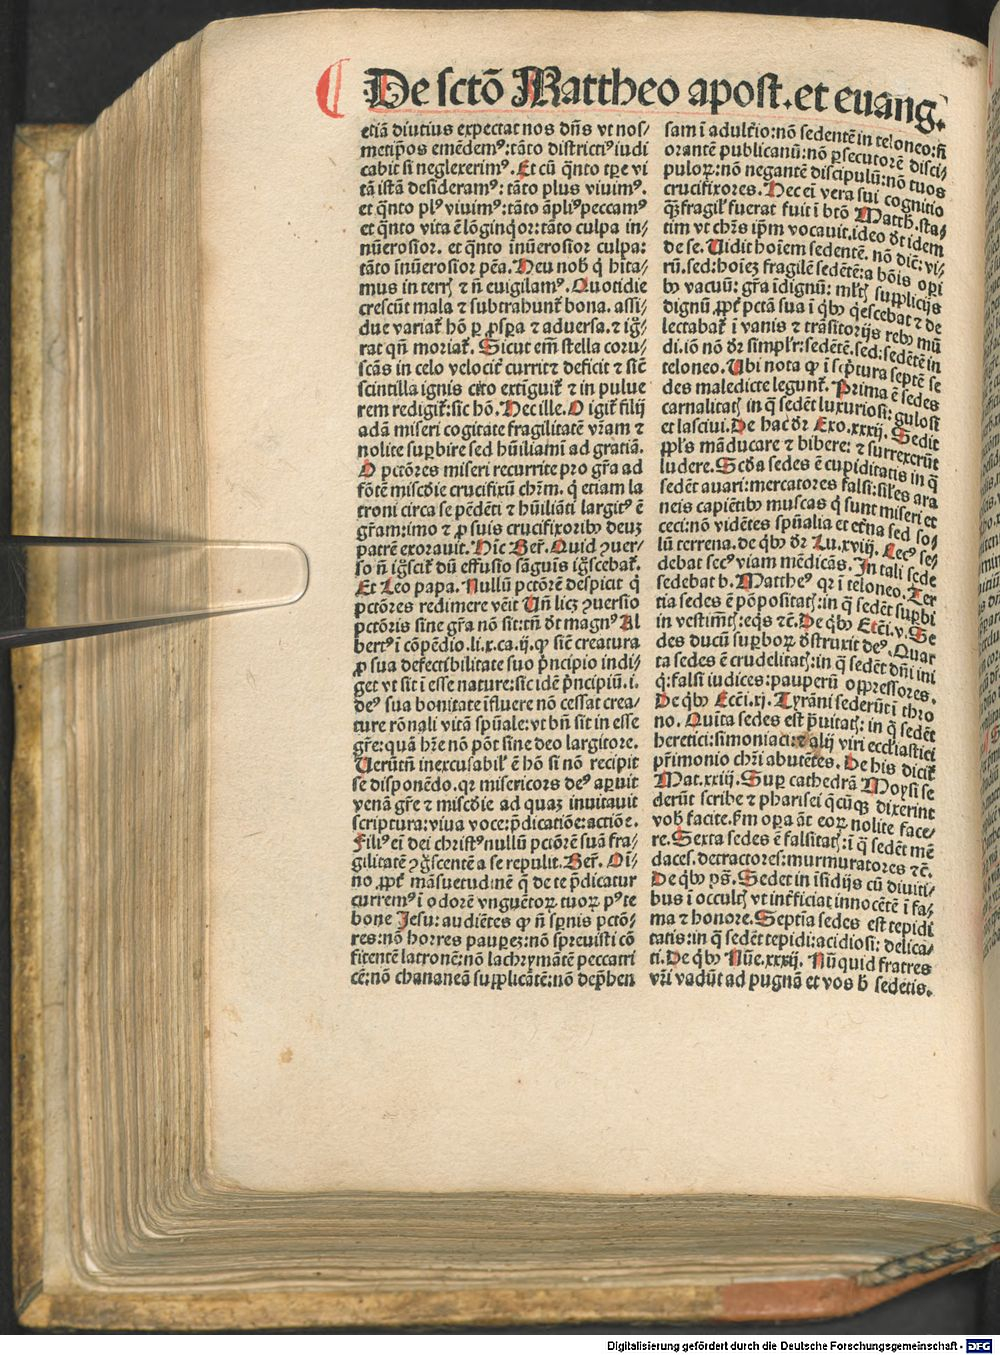 De sctō Mattheo apost. et euang.
etiā diutius expectat nos dn̄s vt nos/
metip̄os emēdemꝰ: tāto districtiꝰ iudi
cabit si neglexerimꝰ. Et cū q̄nto tꝑe vi
tā istā desideramꝰ: tāto plus viuimꝰ.
et q̄nto plꝰ viuimꝰ: tāto āpliꝰ peccamꝰ
et q̄nto vita ē lōginq̇or: tāto culpa in/
nūerosior. et q̄nto inūerosior culpa:
tāto inūerosior pēa. Heu nob̄ q̇ hīta/
mus in terrꝭ ⁊ n̄ euigilamꝰ. Quotidie
crescūt mala ⁊ subtrahunt̄ bona. assi/
due variat̄ hō ꝑ ꝓsꝑa ⁊ aduersa. ⁊ ig̊/
rat qn̄ moriat̄. Sicut em̄ stella coru/
scās in celo velocit̄ currit ⁊ deficit ⁊ sic̄
scintilla ignis cito extīguit̄ ⁊ in pulue
rem redigit̄: sic hō. Hec ille. O igit̄ filij
adā miseri cogitate fragilitatē vr̄am ⁊
nolite suꝑbire sed hūiliamī ad gratiā.
O pctōres miseri recurrite pro gr̄a ad
fōtē miscdie crucifixū chr̄m. q̇ etiam la
troni circa se pēdēti ⁊ hūiliāti largitꝰ ē
gr̄am: imo ⁊ ꝓ suis crucifixoribꝫ deuꝫ
patrē exorauit. Hīc Ber̄. Quid ꝯuer/
so n̄ ig̊scit̄ dū effusio sāguis ig̊scebat̄.
Et Leo papa. Nullū pctōrē despicit q̇
pctōres redimere vēit Vn̄ licꝫ ꝯuersio
pctōris sine gr̄a nō sit: tn̄ dt magnꝰ Al
bertꝰ ī cōpēdio. li. x. ca. ij. ꝙ sic̄ creatura
ꝓ sua defectibilitate suo pͥncipio indi/
get vt sit ī esse nature: sic idē pͥncipiū. i.
deꝰ sua bonitate īfluere nō cessat crea/
ture rōnali vitā spūale: vt bn̄ sit in esse
gr̄e: quā hr̄e nō pōt sine deo largitore.
Verūtn̄ inexcusabil̄ ē hō si nō recipit
se disponēdo. qꝛ misericors deꝰ aꝑuit
venā gr̄e ⁊ miscdie ad quaꝫ inuitauit
scriptura: viua voce: p̄dicatiōe: actiōe.
Filiꝰ ei dei christꝰ nullū pctōrē suā fra/
gilitatē ꝯg̊scentē a se repulit. Ber̄. Oī/
no ꝓpt̄ māsuetudinē q̄ de te p̄dicatur
curremꝰ ī odorē vnguētoꝝ tuoꝝ pꝰ te
bone Jesu: audiētes ꝙ n̄ sꝑnis pctō/
res: nō horres pauꝑeꝫ: nō spreuisti cō
fitentē latronē: nō lachrymātē peccatri
cē: nō chananeā supplicātē: nō dep̄hen
sam ī adult̄io: nō sedentē in teloneo: n̄
orantē publicanū: nō ꝑsecutorē disci/
puloꝝ: nō negantē discipulū: nō tuos
crucifixores. Hec ei vera sui cognitio
qꝫ fragil̄ fuerat fuit ī btō Matth. sta/
tim vt chr̄s ip̄m vocauit. ideo dt idem
de se. Vidit hoīem sedentē. nō dic̄: vi/
rū. sed: hoīeꝫ fragilē sedētē: a bōis oꝑi
bꝫ vacuū: gr̄a īdignū: ml̄tꝭ supplicijs
dignū ꝓpt̄ pctā sua ī q̇bꝫ q̇escebat ⁊ de
lectabat̄ ī vanis ⁊ trāsitorijs rebꝫ mū
di. iō nō dr̄ simpl̄r: sedētē. sed: sedētē in
teloneo. Vbi nota ꝙ ī scͥptura septē se
des maledicte legunt̄. Prima ē sedes
carnalitatꝭ in q̄ sedēt luxuriosi: gulosi
et lasciui. De hac dr̄ Exo. xxxij. Sedit
ppl̄s māducare ⁊ bibere: ⁊ surrexerūt
ludere. Scda sedes ē cupiditatis in q̄
sedēt auari: mercatores falsi: sil̄es ara
neis capiētibꝫ muscas q̇ sunt miseri et
ceci: nō vidētes spūalia et et̄na sed so/
lū terrena. de q̇bꝫ dr̄ Lu. xviij. Cecꝰ se/
debat secꝰ viam mēdicās. In tali sede
sedebat b. Mattheꝰ qꝛ ī teloneo. Ter
tia sedes ē pōpositatꝭ: in q̄ sedēt suꝑbi
in vestim̄tꝭ: eq̇s ⁊c̄. De q̇bꝫ Etc̄i. v. Se
des ducū suꝑboꝝ dstruxit deꝰ. Quar
ta sedes ē crudelitatꝭ: in q̄ sedēt dn̄i ini
q̇: falsi iudices: pauperū oppressores.
De q̇bꝫ Ecc̄i. xj. Tyrāni sederūt ī thro
no. Quīta sedes est pͣuitatꝭ: in q̄ sedēt
heretici: simoniaci: ⁊ alij viri eccl̄iastici
pr̄imonio chr̄i abutētes. De his dicit̄
Mat. xxiij. Suꝑ cathedrā Moysi se
derūt scribe ⁊ pharisei q̄cūqꝫ dixerint
vob̄ facite. ẜm oꝑa āt eoꝝ nolite face/
re. Sexta sedes ē falsitatꝭ: ī q̄ sedēt mē
daces. detractores: murmuratores ⁊c̄.
De q̇bꝫ ps̄. Sedet in īsidijs cū diuiti/
bus ī occultꝭ vt int̄ficiat innocētē ī fa/
ma ⁊ honore. Septīa sedes est tepidi
tatis: in q̄ sedēt tepidi: acidiosi: delica/
ti. De q̇bꝫ Nūe. xxxij. Nūquid fratres
vr̄i vadūt ad pugnā et vos h̄ sedetis.
Digitalisierung gefördert durch die Deutsche Forschungsgemeinschaft - DFG